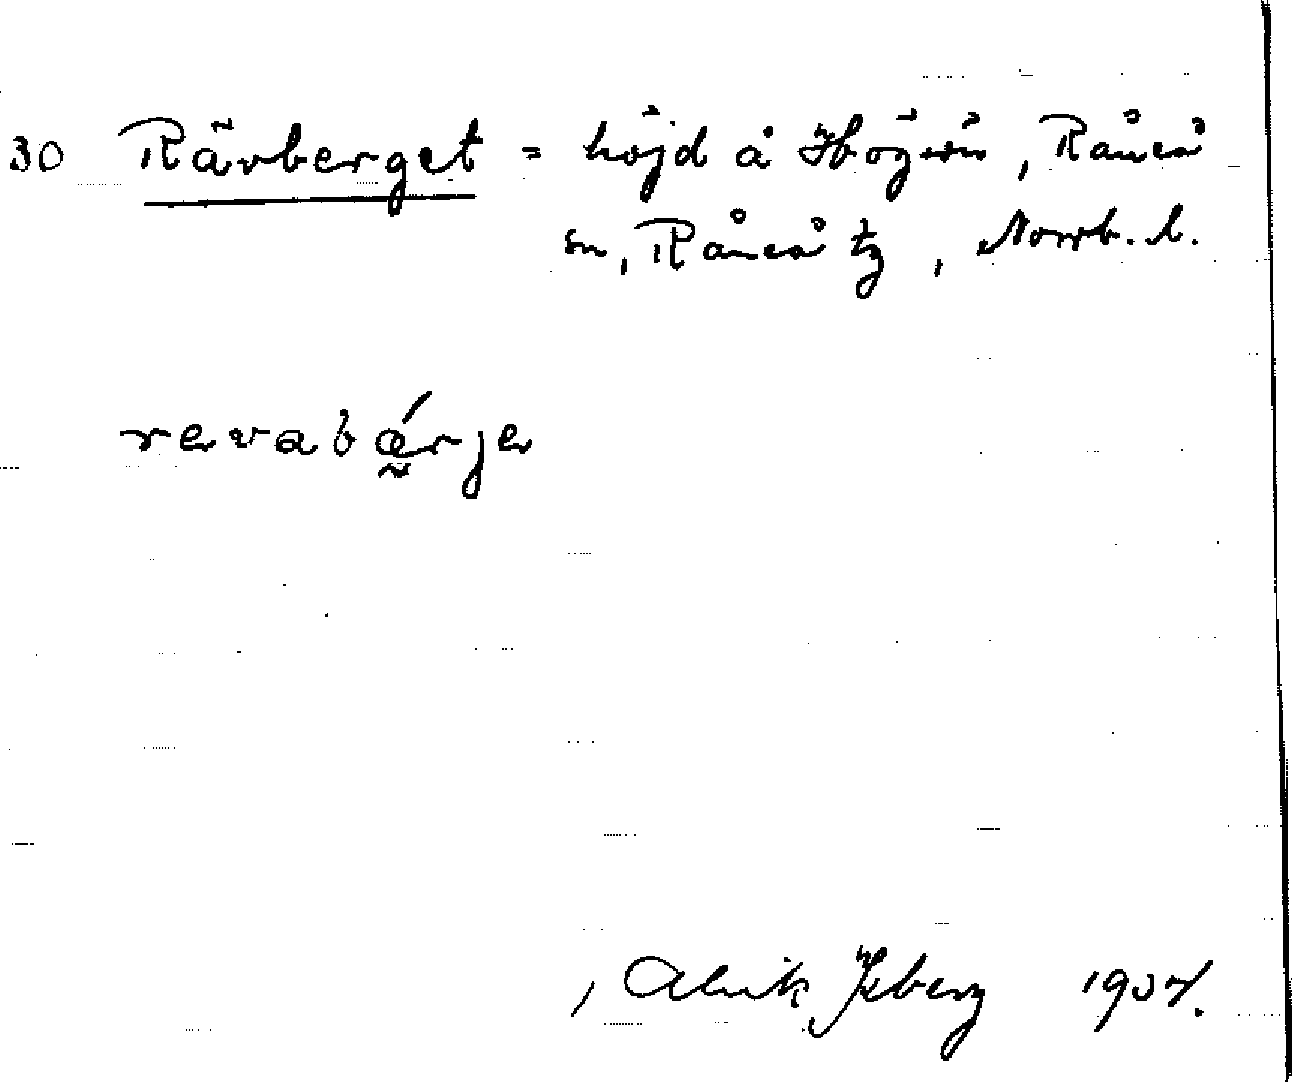 30 Rävberget = höjd å Högsön, Råneå
sn, Råneå tg, Norrb. l.
revabärjer
, Alrik Isberg 1937.